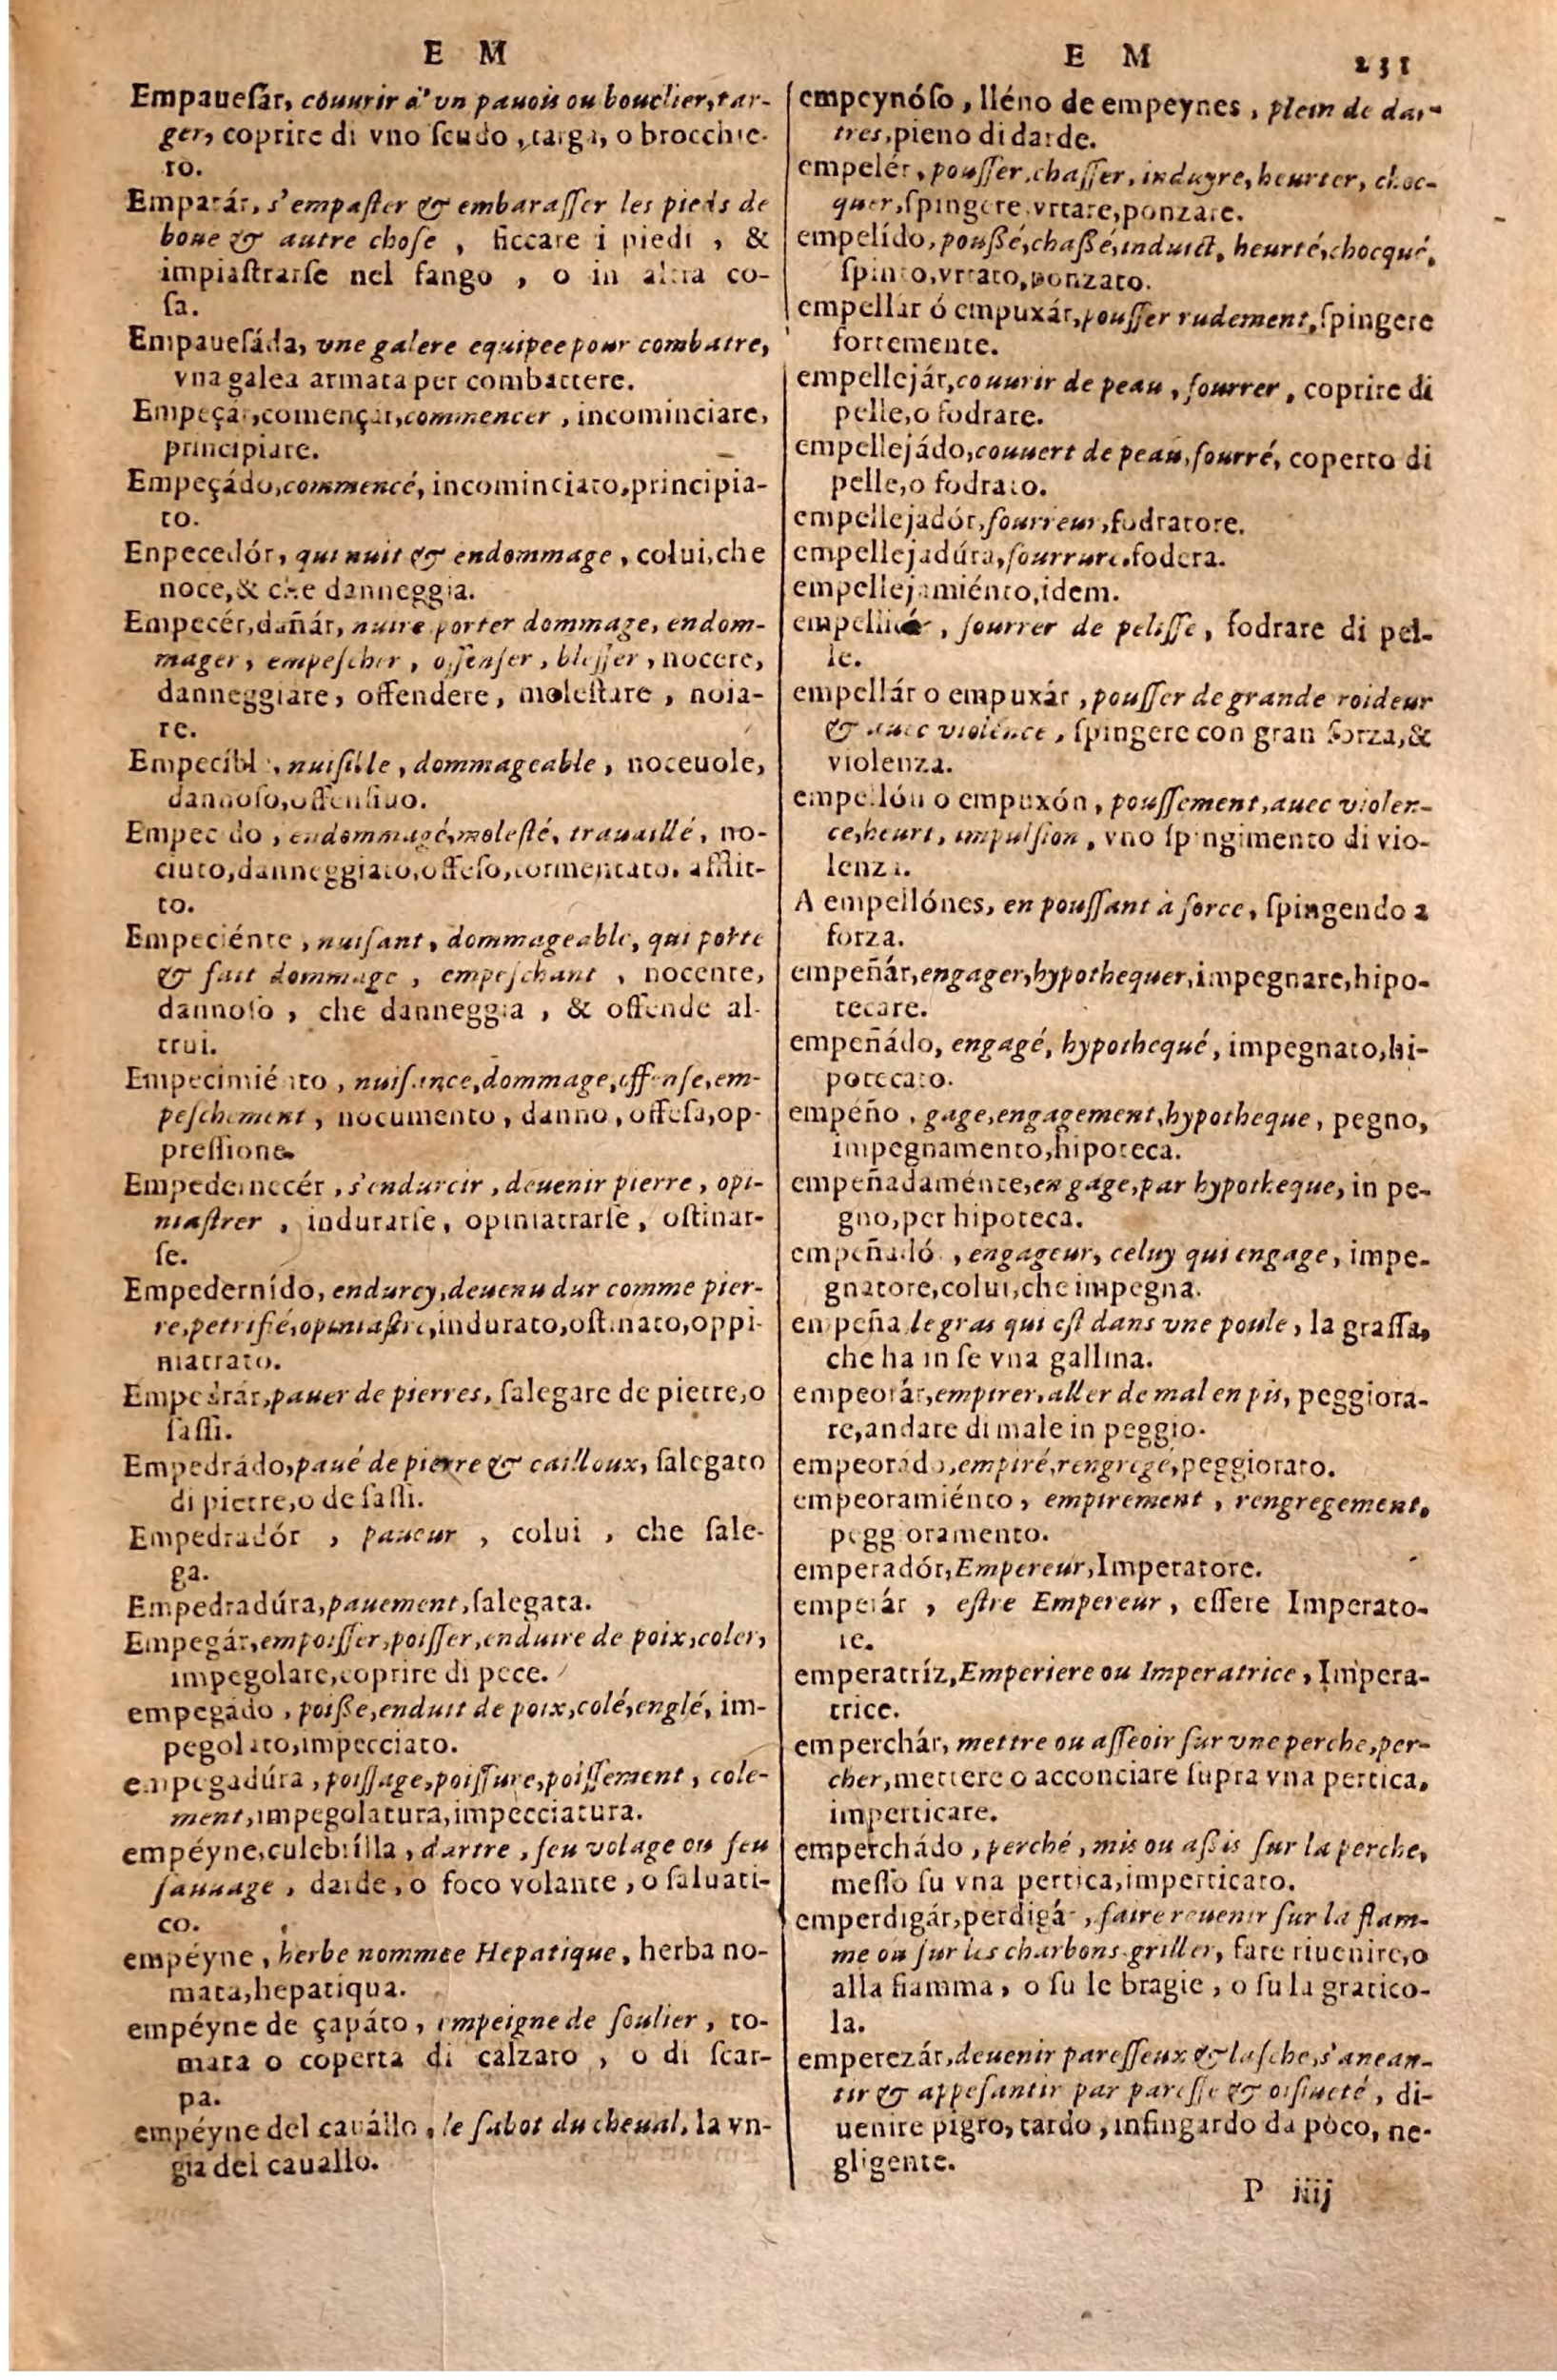 E M
Empauesar, couurir d'vn pauois ou bouclier, tar-
ger, coprire di vno scudo, targa, o brocchie-
ro.
Empatár, s'empaster & embarasser les pieds de
boue & autre chose, ficcare i piedi, &
impiastrarse nel fango, o in altra co-
sa.
Empauesáda, vne galere equipee pour combatre,
vna galea armata per combattere.
Empeçar, començar, commencer, incominciare,
principiare.
Empeçádo, commencé, incominciato, principia-
to.
Enpecedór, qui nuit & endommage, colui, che
noce, & che danneggia.
Empecér, dañár, nuire porter dommage, endom-
mager, empescher, offenser, blesser, nocere,
danneggiare, offendere, molestare, noia-
re.
Empecíbl, nuisille, dommageable, noceuole,
dannoso, offensiuo.
Empec do, endommagé, molesté, trauaillé, no-
ciuto, danneggiato, offeso, tormentato, afflit-
to.
Empeciénte, nuisant, dommageable, qui porte
& fait dommage, empeschant, nocente,
dannoso, che danneggia, & offende al-
trui.
Empecimiénto, nuisance, dommage, offense, em-
peschement, nocumento, danno, offesa, op-
pressione.
Empedernecér, s'endurcir, deuenir pierre, opi-
niastrer, indurarse, opiniatrarse, ostinar-
se.
Empedernído, endurcy, deuenu dur comme pier-
re, petrifié, opiniastre, indurato, ostinato, oppi-
niatrato.
Empedrár, pauer de pierres, salegare de pietre, o
sassi.
Empedrádo, paué de pierre & cailloux, salegato
di pietre, o de sassi.
Empedradór, paueur, colui, che sale-
ga.
Empedradúra, pauement, salegata.
Empegár, empoisser, poisser, enduire de poix, coler,
impegolare, coprire di pece.
empegádo, poißé, enduit de poix, colé, englé, im-
pegolato, impecciato.
empegadúra, poissage, poissure, poissement, cole-
ment, impegolatura, impecciatura.
empéyne, culebrílla, dartre, feu volage ou feu
sauuage, darde, o foco volante, o saluati-
co.
empéyne, herbe nommee Hepatique, herba no-
mata, hepatiqua.
empéyne de çapáto, empeigne de soulier, to-
mara o coperta di calzaro, o di scar-
pa.
empéyne del cauállo, le sabot du cheual, la vn-
gia del cauallo.
E M 231
empeynóso, lléno de empeynes, plein de dar-
tres, pieno di darde.
empelér, pousser, chasser, induyre, heurter, choc-
quer, spingere, vrtare, ponzare.
empelído, poußé, chaßé, induict, heurté, chocqué,
spinto, vrtato, ponzato.
empellár ó empuxár, pousser rudement, spingere
fortemente.
empellejár, couurir de peau, fourrer, coprire di
pelle, o fodrare.
empellejádo, couuert de peau, fourré, coperto di
pelle, o fodrato.
empellejadór, fourreur, fodratore.
empellejadúra, fourrure, fodera.
empellejamiénto, idem.
empellicár, fourrer de pelisse, fodrare di pel-
le.
empellár o empuxár, pousser de grande roideur
& auec violence, spingere con gran forza, &
violenza.
empellón o empuxón, poussement, auec violen-
ce, heurt, impulsion, vno spingimento di vio-
lenza.
A empellónes, en poussant à force, spingendo a
forza.
empeñár, engager, hypothequer, impegnare, hipo-
tecare.
empeñádo, engagé, hypothequé, impegnato, hi-
potecato.
empéño, gage, engagement, hypotheque, pegno,
impegnamento, hipoteca.
empeñadaménte, en gage, par hypotheque, in pe-
gno, per hipoteca.
empeñadó, engageur, celuy qui engage, impe-
gnatore, colui, che impegna.
enpeña le gras qui est dans vne poule, la grassa,
che ha in se vna gallina.
empeorár, empirer, aller de mal en pis, peggiora-
re, andare di male in peggio.
empeorádo, empiré, rengregé, peggiorato.
empeoramiénto, empirement, rengregement,
peggioramento.
emperadór, Empereur, Imperatore.
emperár, estre Empereur, essere Imperato-
re.
emperatríz, Emperiere ou Imperatrice, Impera-
trice.
emperchár, mettre ou asseoir sur vne perche, per-
cher, mettere o acconciare supra vna pertica,
imperticare.
emperchádo, perché, mis ou aßis sur la perche,
messo su vna pertica, imperticato.
emperdigár, perdigár, faire reuenir sur la flam-
me ou sur les charbons griller, fare riuenire, o
alla fiamma, o su le bragie, o su la gratico-
la.
emperezár, deuenir paresseux & lasche, s'anean-
tir & appesantir par paresse & oisiueté, di-
uenire pigro, tardo, infingardo da pòco, ne-
gligente.
P iiij